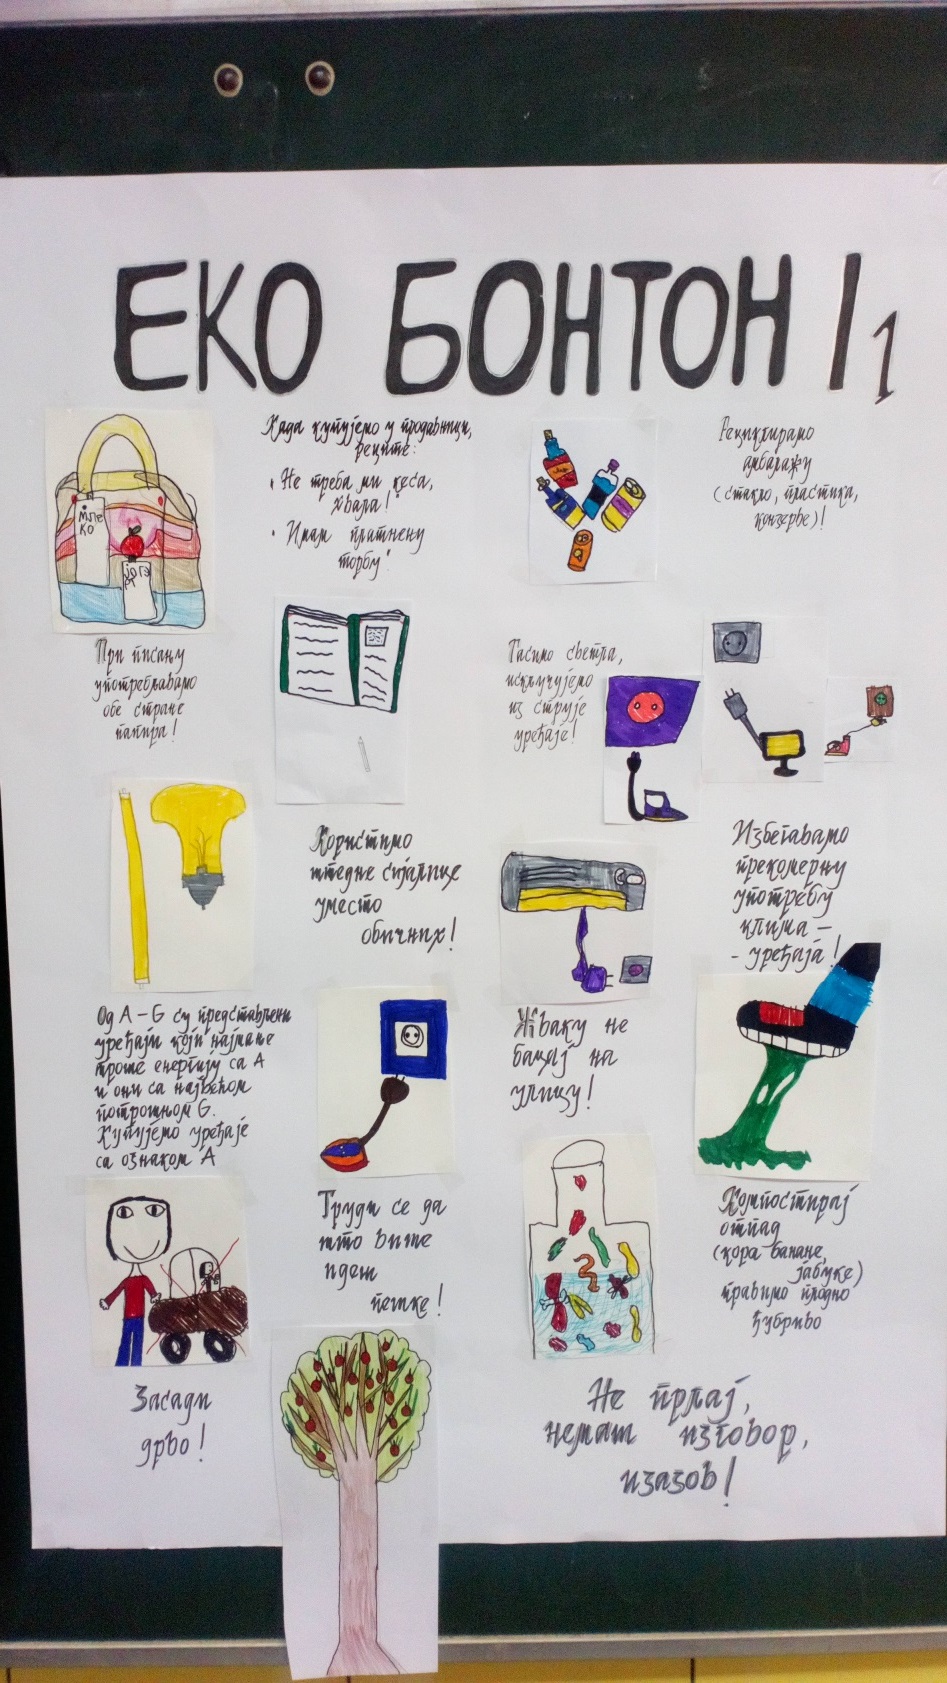 ЕКО БОНТОН I1
Када купујемо у продавници,
реците:
• Не треба ми кеса,
хвала!
• Имам платнену
торбу"
Рециклирамо
амбалажу
(стакло, пластика,
конзерве)!
мле
ко
При писању
употребљавамо
обе стране
папира!
Гасимо светла,
искључујемо
из струје
уређаје!
Користимо
штедне сијалице
уместо
обичних!
Избегавамо
прекомерну
употребу
клима –
- уређаја!
Од А – G су представљени
уређаји који најмање
троше енергију са А
и они са највећом
потрошњом G.
Купујемо уређаје
са ознаком А
Жваку не
бацај на
улицу!
Труди се да
што више
идеш
пешке!
Компостирај
отпад
(кора банане,
јабуке)
правимо плодно
ђубриво
Засади
дрво!
Не прљај,
немаш изговор,
изазов!